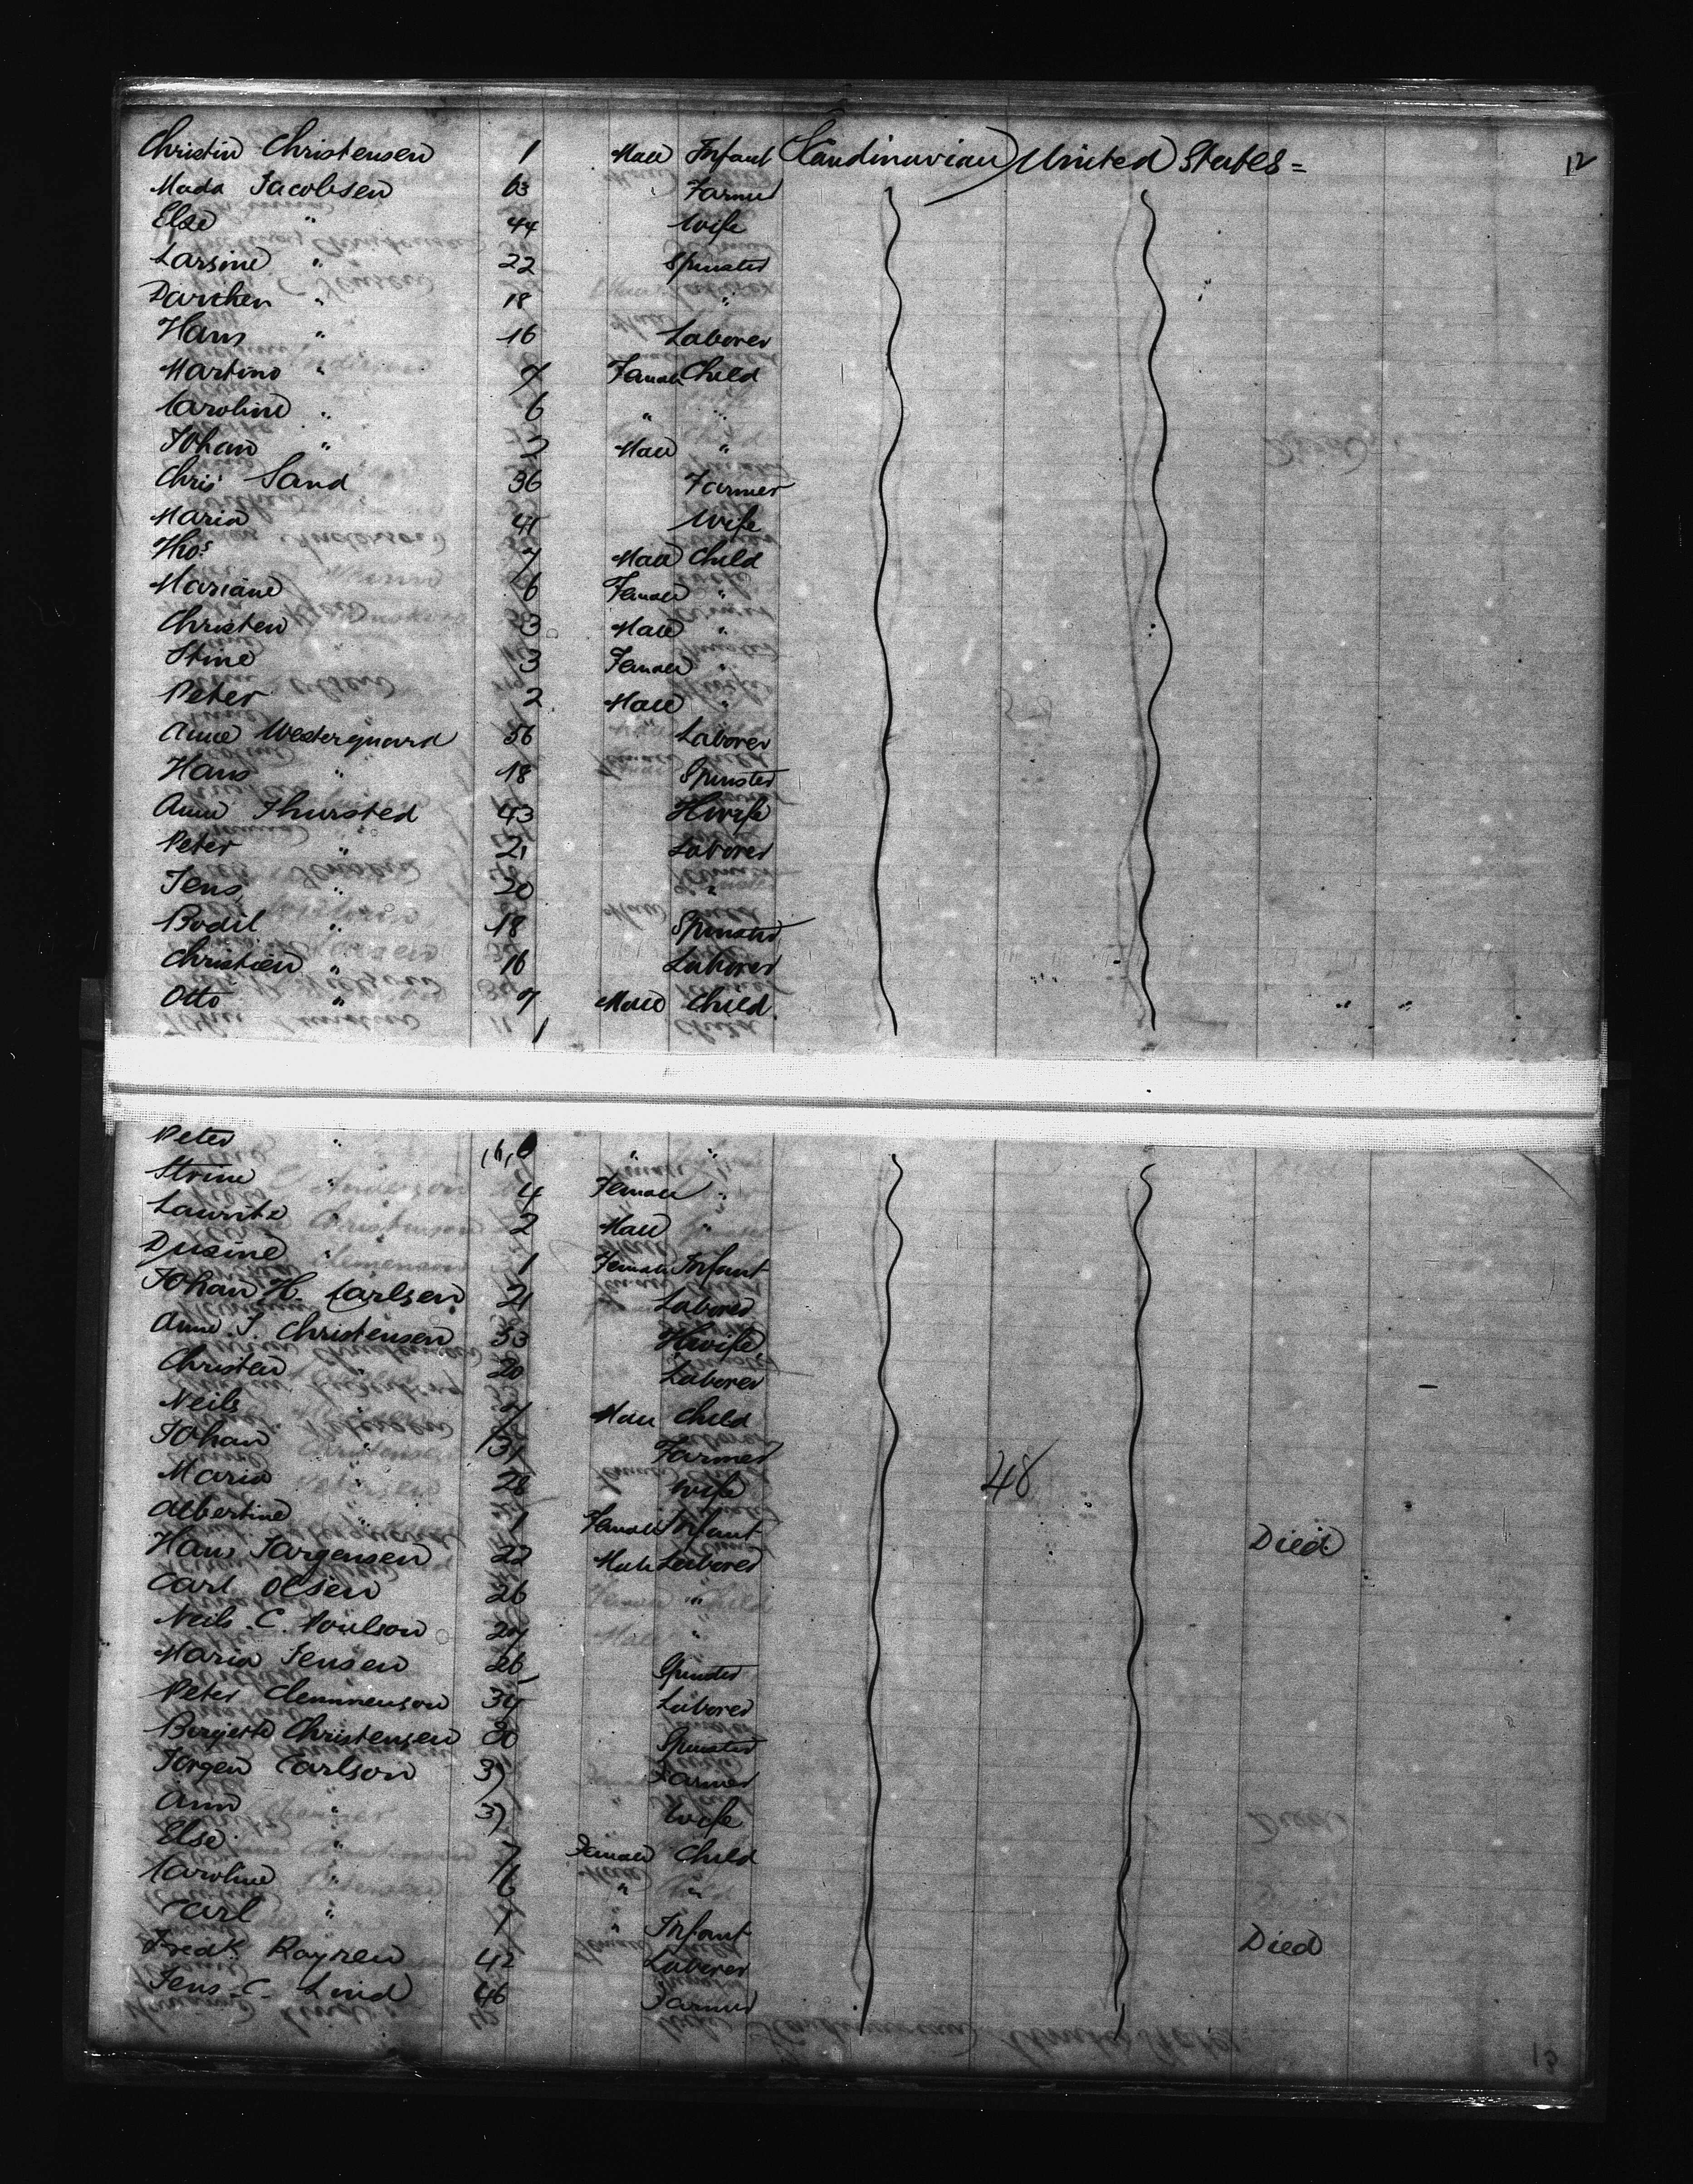 Christin Christensen 1 Male Infant Scandinavian United States = 12
Mads Jacobsen 63 Farmer
Else " 44 Wife
Larsine " 22 Spinster
" 18 "
Hans " 16 Laborer
Martine " 7 Female Child
Caroline " 6 " "
Johan " 2 Male "
Chris Sand 36 Farmer
Maria 41 Wife
Thos 7 Male Child
Mariane 6 Female "
Christen 3 Male "
Stine 3 Female "
Peter 2 Male "
Anne Westerguard 56 Laborer
Hans " 18 Spinster
Anne Thursted 43 Hwife
Peter " 21 Laborer
Jens " 20 "
Bodil " 18 Spinster
Christien " 16 Laborer
Otto " 7 Male Child
Peter " 6 " "
Strine " 4 Female "
Lauritz " 2 Male "
Dusine " 1 Female Infant
Johan H. Carlsen 21 Laborer
Anne J. Christensen 53 Hwife
Christen " 20 Laborer
Neils " 7 Male Child
Johan " 31 Farmer
Maria " 28 Wife 48
Albertine " 1 Female Infant Died
Hans Jorgensen 22 Male Laborer
Carl Olsen 26 "
Neils C. Poulson 27 "
Maria Jensen 26 Spinster
Peter Clemmenson 34 Laborer
Christensen 20 Spinster
Jorgen Carlson 37 Farmer
Ann " 37 Wife
Else " 7 Female Child
Caroline " 6 " "
Carl " 1 " Infant Died
Fredk 42 Laborer
Jens C. Lind 46 Farmer